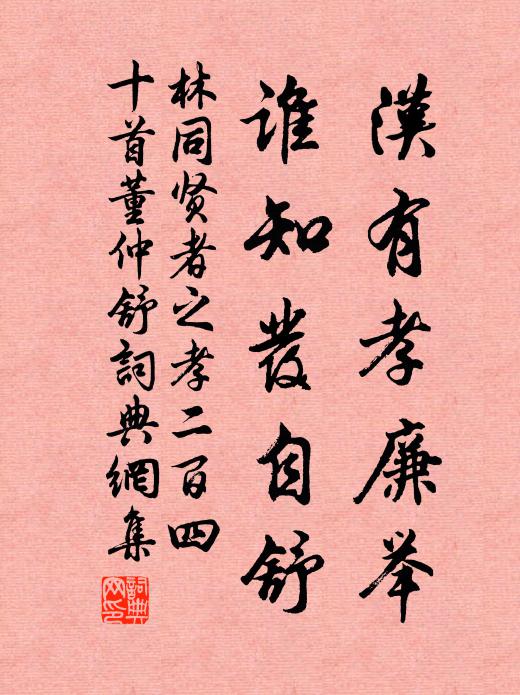 漢有孝廉举
谁知發自舒
林同贤者之孝二百四
十首董仲舒詞典網集
詞典網印